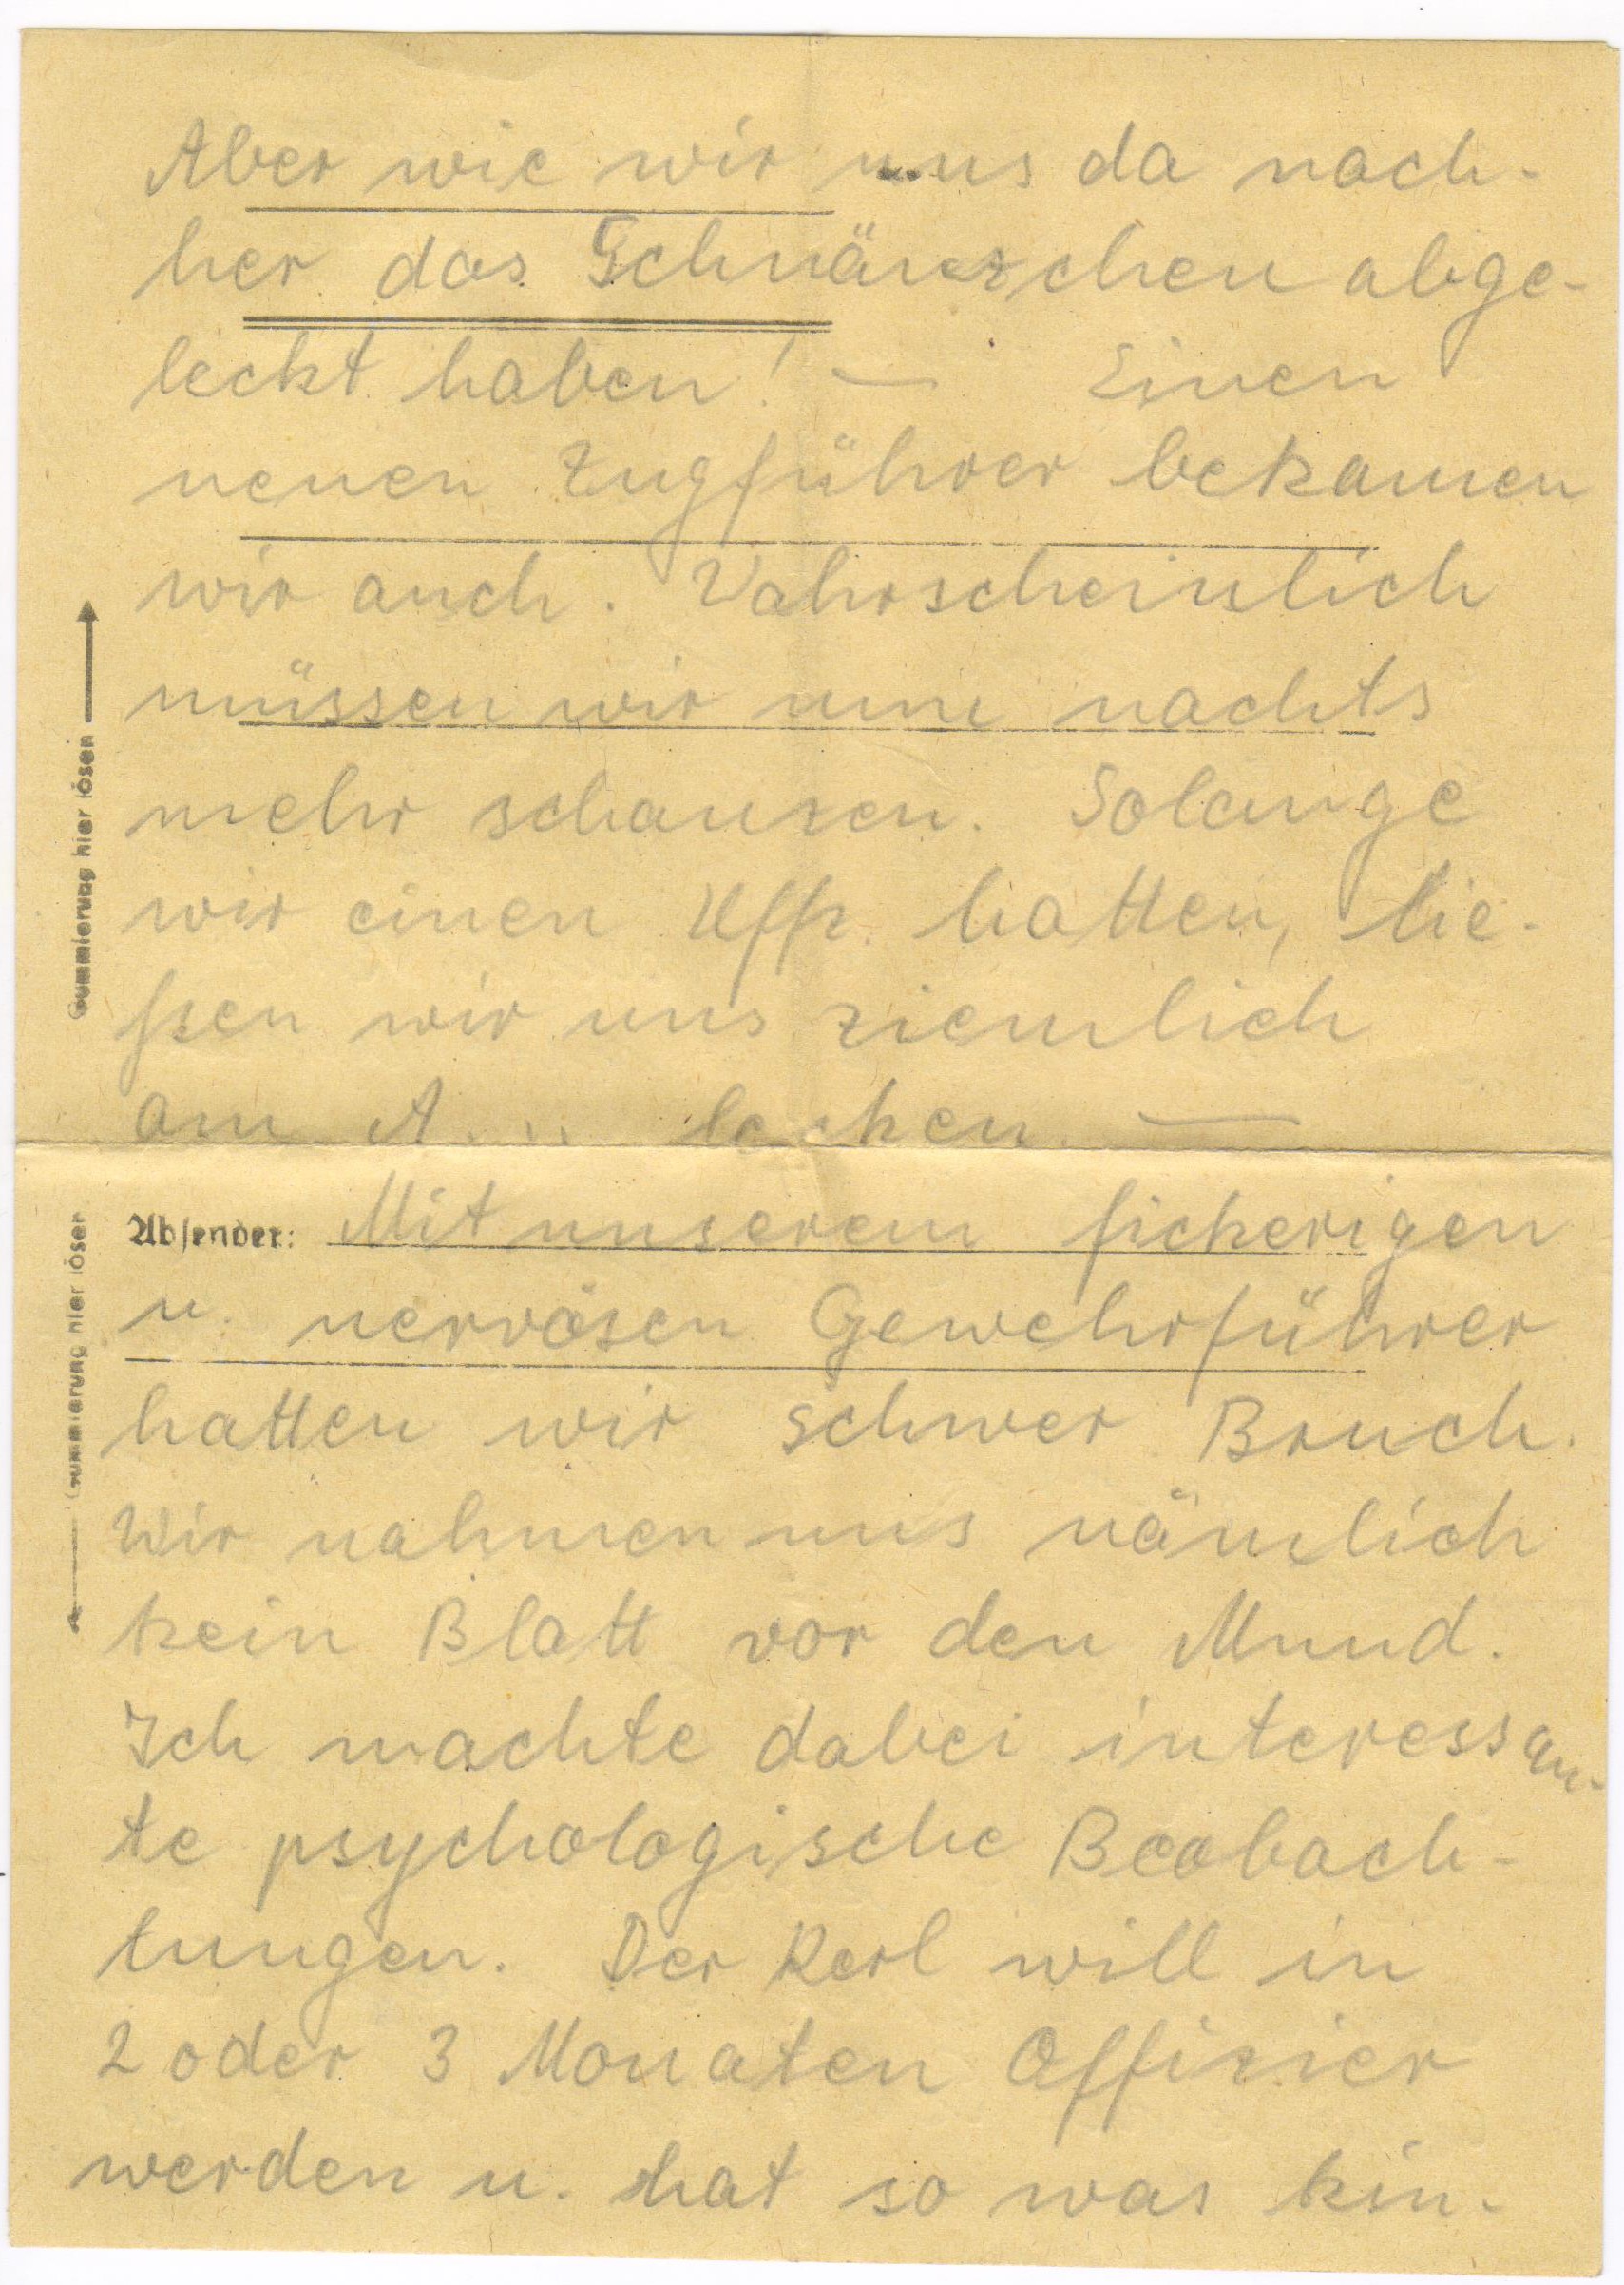 Aber wie wir uns da nach-
her das Schnäuzchen abge-
leckt haben! — Einen
neuen Zugführer bekamen
wir auch. Wahrscheinlich
müssen wir nun nachts
mehr schanzen. Solange
wir einen Uffz. hatten, lie-
ßen wir uns ziemlich
am A... lecken. —
Absender: Mit unserem fickerigen
u. nervösen Gewehrführer
hatten wir schwer Bruch.
Wir nahmen uns nämlich
kein Blatt vor den Mund.
Ich machte dabei interessan-
te psychologische Beobach-
tungen. Der Kerl will in
2 oder 3 Monaten Offizier
werden u. hat so was kin-
Gummierung hier lösen
Gummierung hier lösen